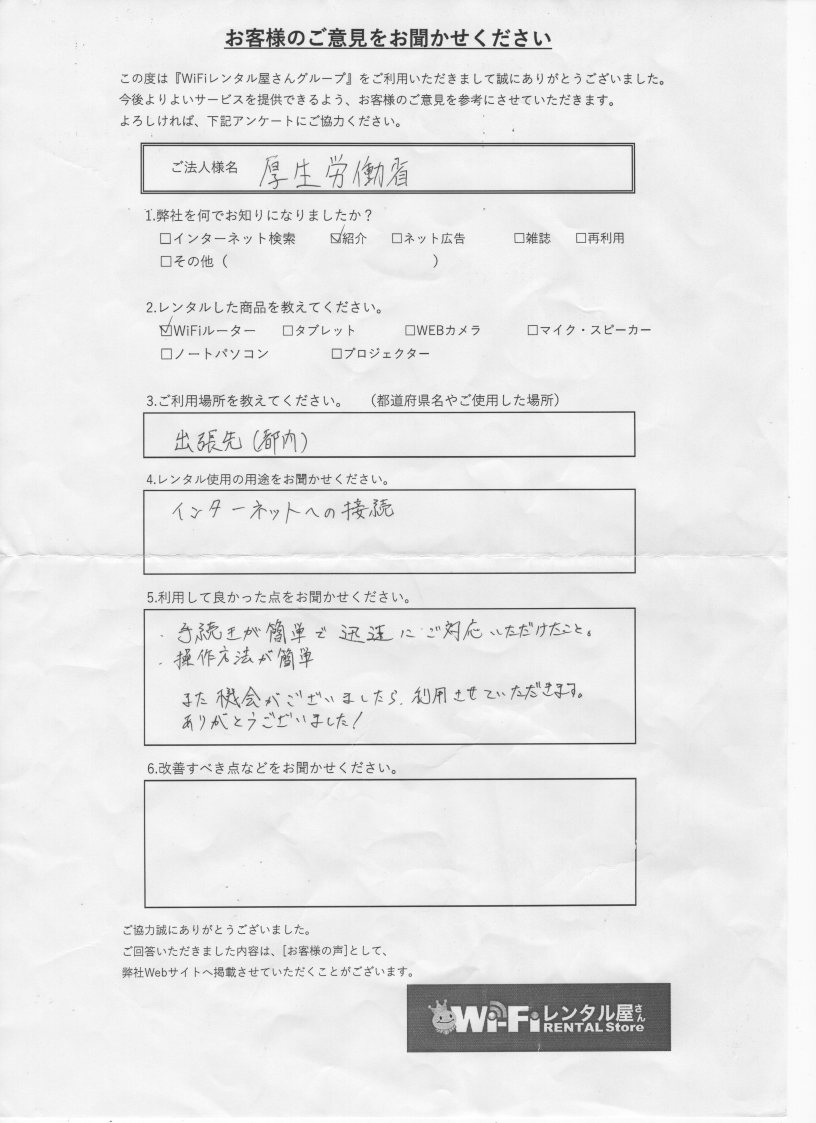 お客様のご意見をお聞かせください
この度は『WiFiレンタル屋さんグループ』をご利用いただきまして誠にありがとうございました。
今後よりよいサービスを提供できるよう、お客様のご意見を参考にさせていただきます。
よろしければ、下記アンケートにご協力ください。
ご法人様名 厚生労働省
1.弊社を何でお知りになりましたか?
□インターネット検索 ☑紹介 □ネット広告 □雑誌 □再利用
□その他( )
2.レンタルした商品を教えてください。
☑WiFiルーター □タブレット □WEBカメラ □マイク・スピーカー
□ノートパソコン □プロジェクター
3.ご利用場所を教えてください。 (都道府県名やご使用した場所)
出張先(都内)
4.レンタル使用の用途をお聞かせください。
インターネットへの接続
5.利用して良かった点をお聞かせください。
・手続きが簡単で迅速にご対応いただけたこと。
・操作方法が簡単
また機会がございましたら、利用させていただきます。
ありがとうございました!
6.改善すべき点などをお聞かせください。
ご協力誠にありがとうございました。
ご回答いただきました内容は、[お客様の声]として、
弊社Webサイトへ掲載させていただくことがございます。
Wi-Fiレンタル屋さん
RENTAL Store